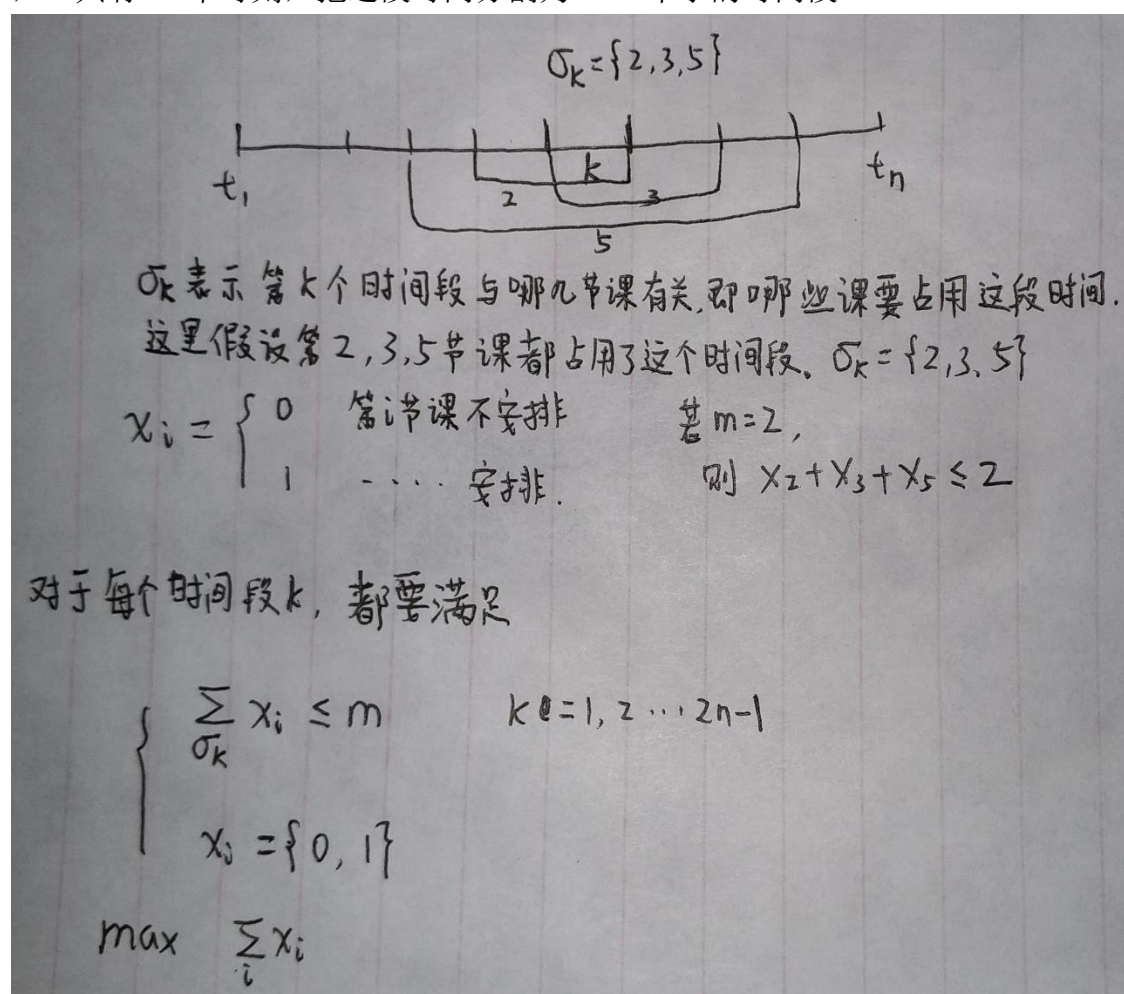 σk={2,3,5}
k
t1
2
3
tn
5
σk 表示 第k个时间段与哪几节课有关,即哪些课要占用这段时间.
这里假设第2,3,5节课都占用了这个时间段。σk={2,3,5}
xi = { 0 第i节课不安排 若m=2,
1 ···· 安排. 则 x2+x3+x5≤2
对于每个时间段k, 都要满足
∑σk xi ≤ m k=1,2···2n-1
xi={0,1}
max ∑i xi